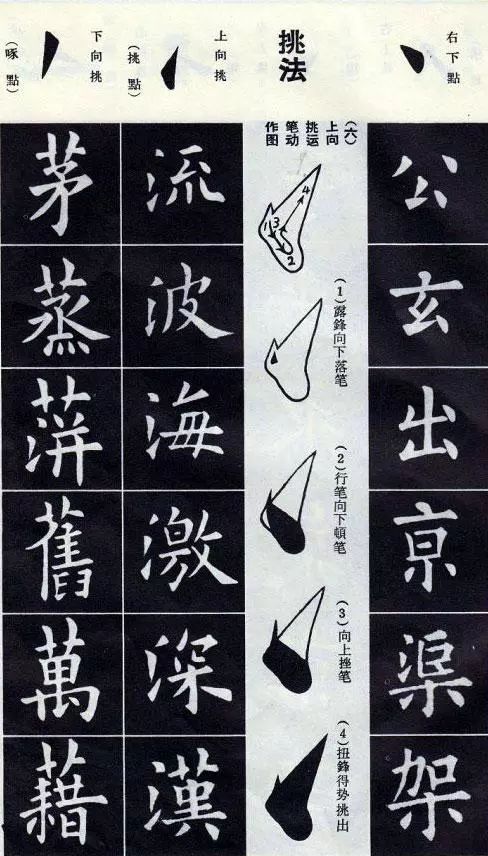 右下點
公
玄
出
京
渠
架
挑法
(六)
上向
挑运
笔动
作图
4
3
1
2
(1)露鋒向下落笔
(2)行笔向下頓笔
(3)向上挫笔
(4)扭鋒得势挑出
上向挑
(挑點)
流
波
海
激
深
漢
下向挑
(啄點)
茅
蒸
蓱
舊
萬
藉